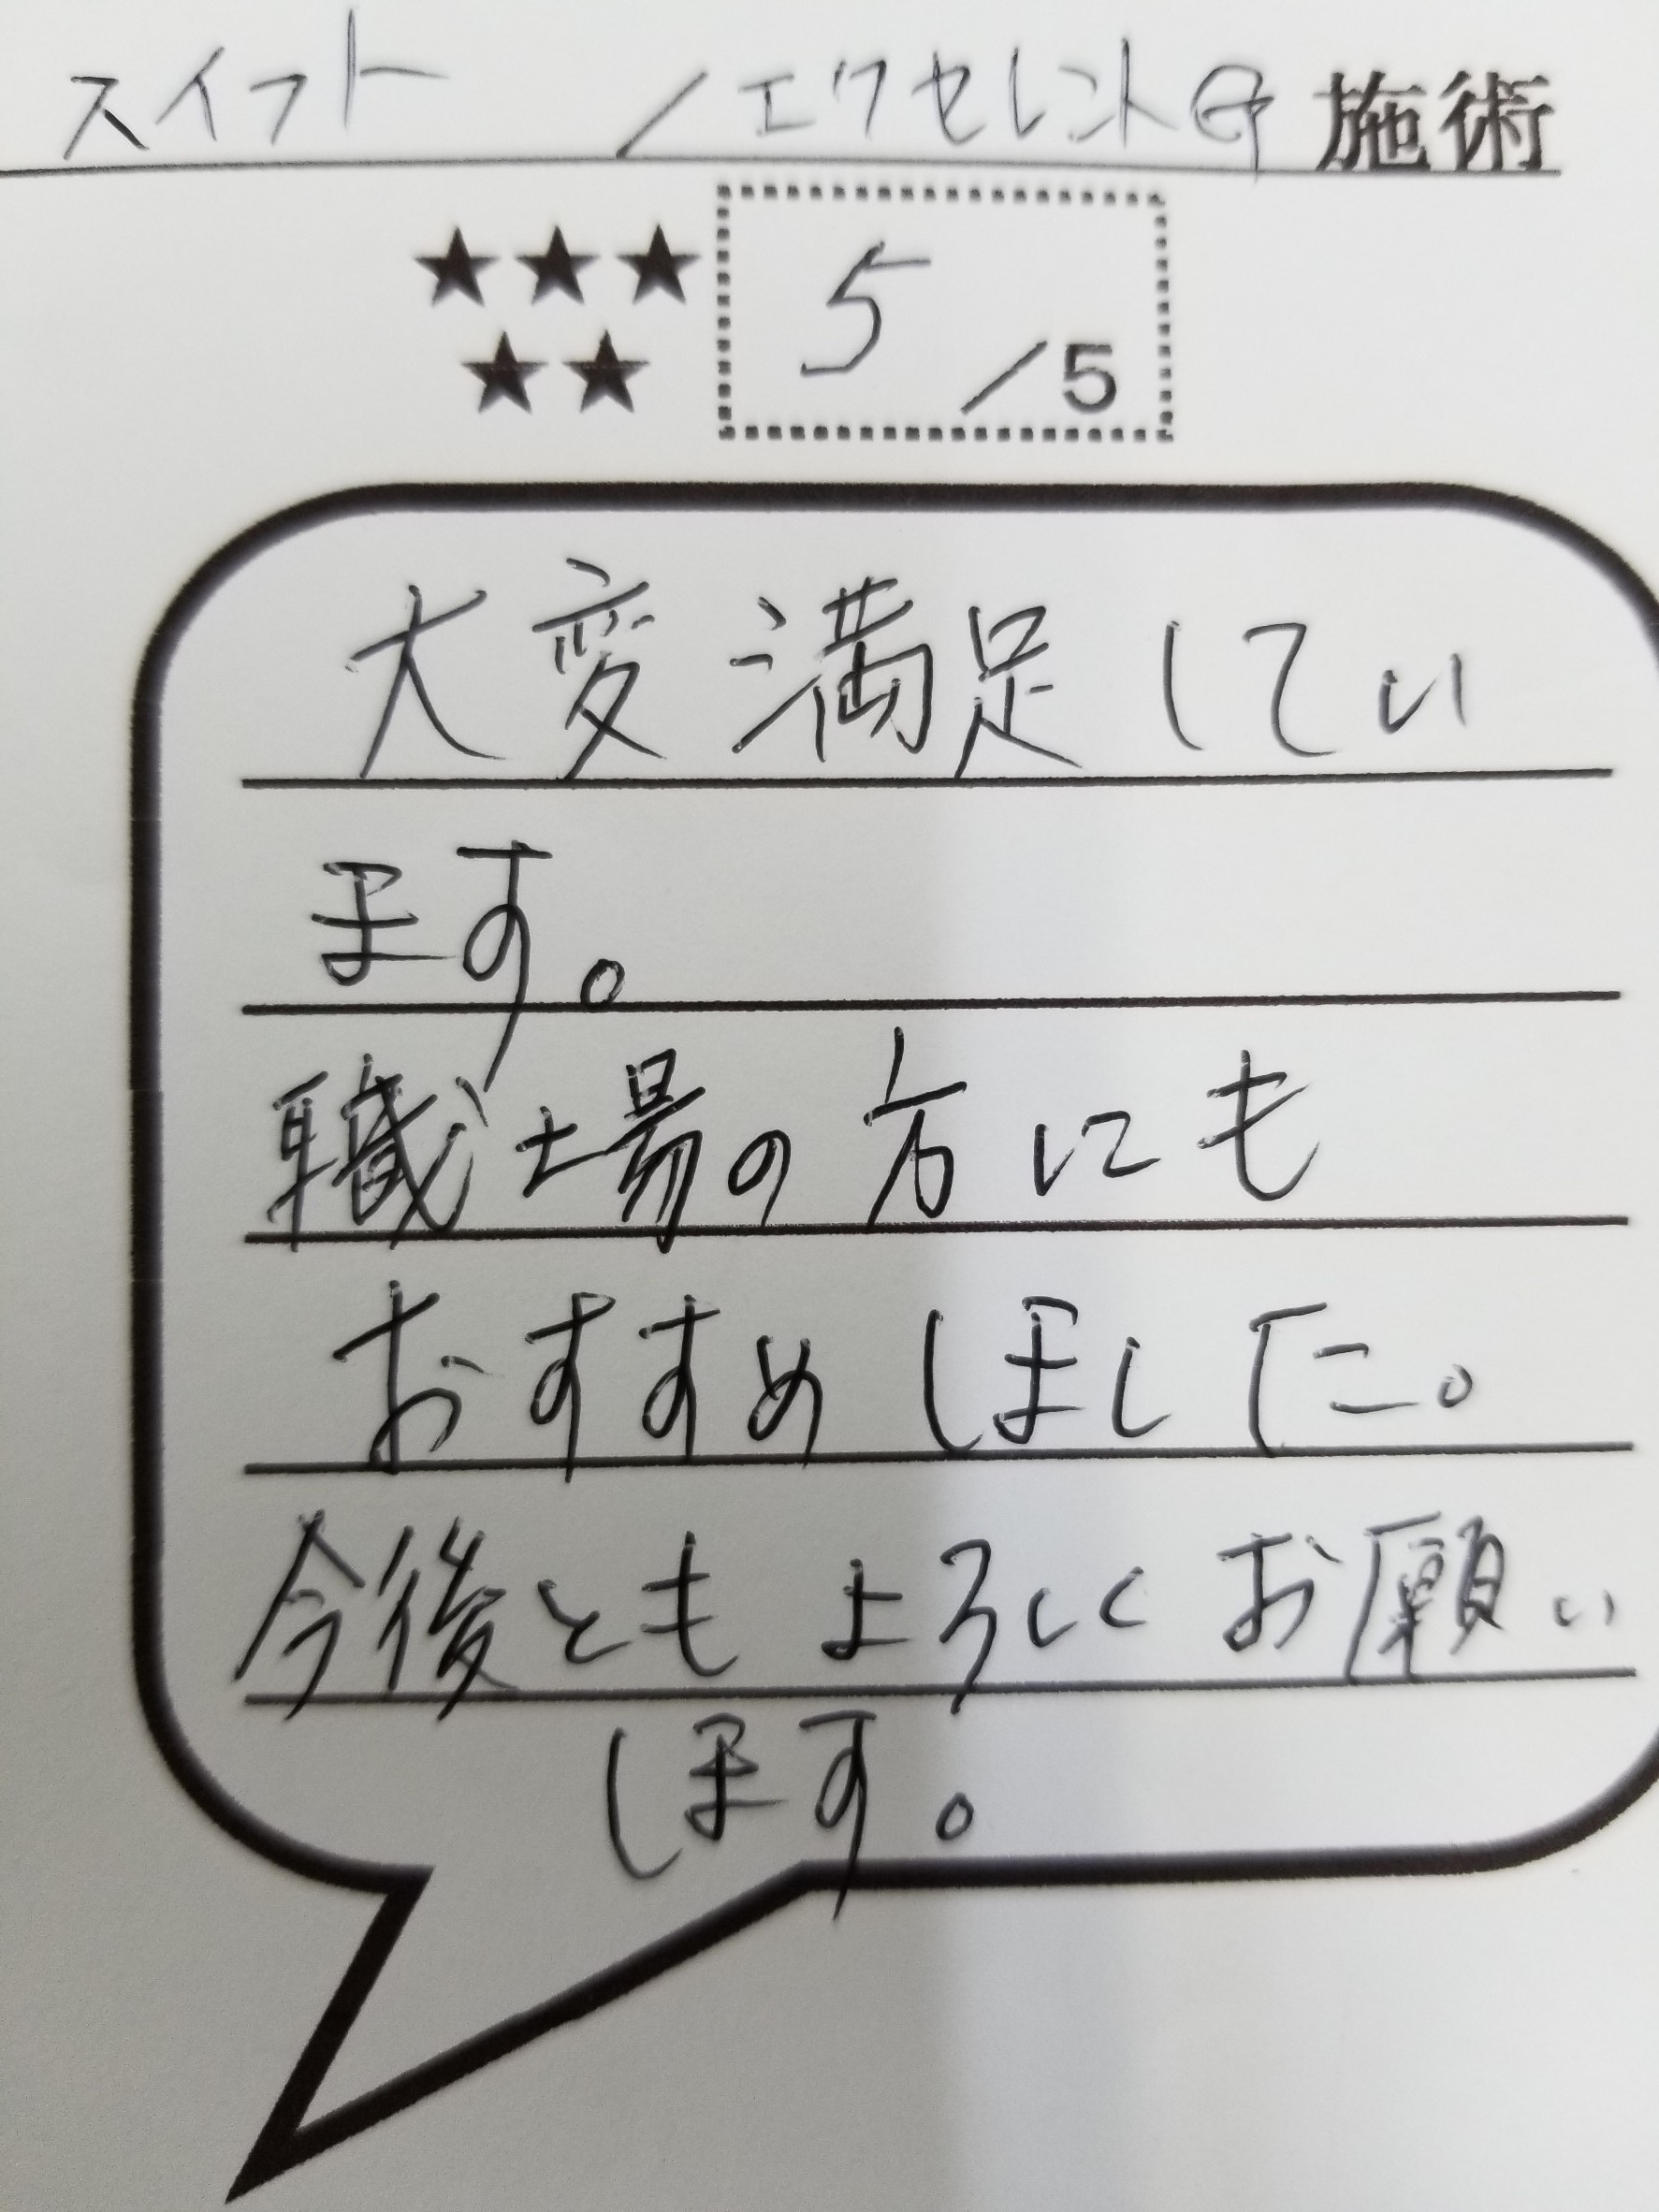 スイフト /エクセレントG 施術
★★★
★★
5/5
大変満足してい
ます。
職場の方にも
おすすめしました。
今後ともよろしくお願い
します。